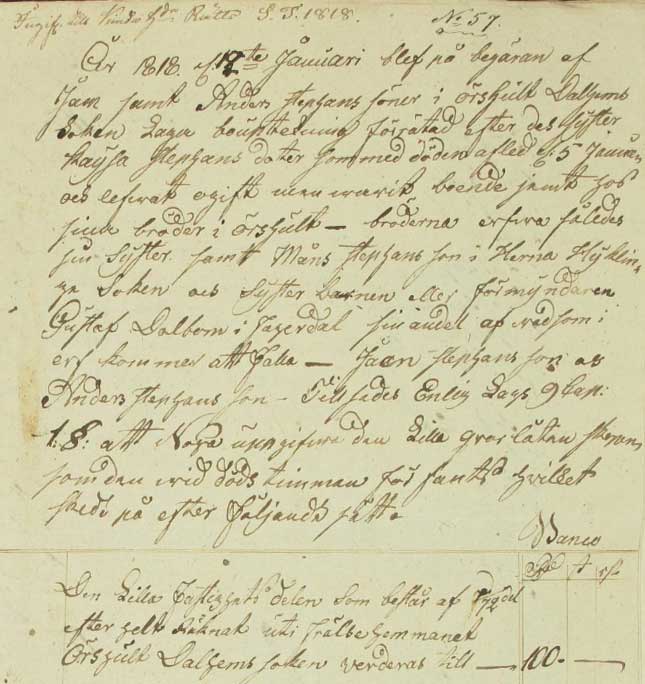 Ingif. till Kinda Hds Rätt S. T. 1818. No 57.
År 1818 d. 12te Januari blef på begäran af
Jaen samt Anders Stephans söner i Örshult Dalhems
Soken Laga bouptekning förrätad efter des Syster
Kaysa Stephans doter som med döden afled d. 5 Januari
och lefvat ogift men varit boende jemt hos
sina bröder i Örshult — bröderna erfva således
sin Syster samt Måns Stephans son i Herna Hyklin-
ge Soken och Syster barnen eller förmyndaren
Gustaf Dalbom i Fagerdal sin andel af vad som i
erf kommer att falla — Jaen Stephans son och
Anders Stephans son — Till sades Enlig Lags 9 Cap:
1 §: att Noga uppgifva den Lilla qvarlåten skapen
som den vid döds timman för fants hvilket
skedde på efter följande sätt
Banco
Rd s rs
Den Lilla Fastighets delen som består af 1/72 del
efter helt Räknat uti Frälse hemmanet
Örshult Dalhems soken verderas till — 100. —